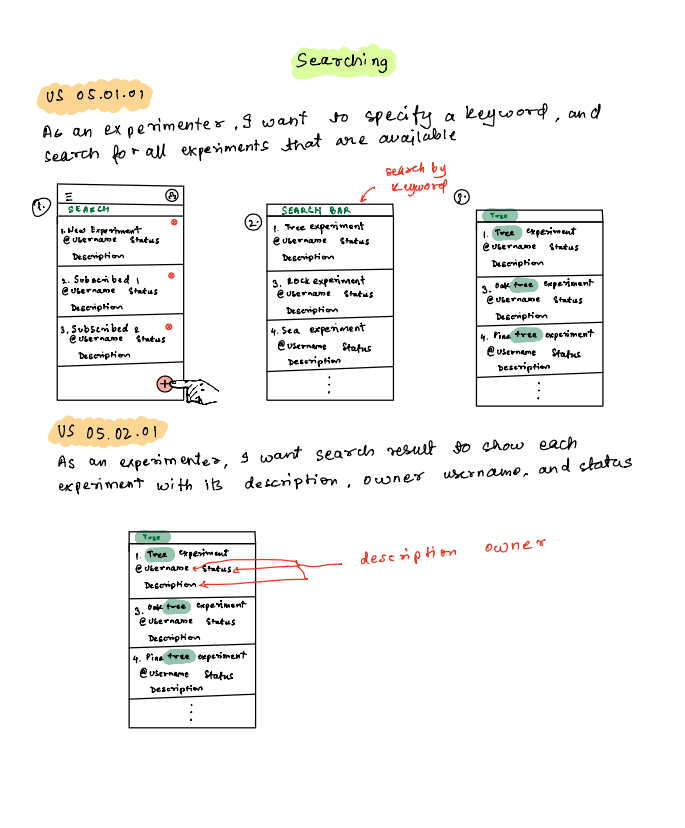 Searching
US 05.01.01
As an experimenter, I want to specify a keyword, and
search for all experiments that are available
search by
keyword
1.
SEARCH
1. New Experiment
@Username Status
Description
2. Subscribed 1
@Username Status
Description
3. Subscribed 2
@Username Status
Description
+
2.
SEARCH BAR
1. Tree experiment
@Username Status
Description
3. Rock experiment
@Username Status
Description
4. Sea experiment
@Username Status
Description
3.
Tree
1. Tree experiment
@Username Status
Description
3. Oak tree experiment
@Username Status
Description
4. Pine tree experiment
@Username Status
Description
US 05.02.01
As an experimenter, I want search result to show each
experiment with its description, owner username, and status
Tree
1. Tree experiment
@Username Status
Description
3. Oak tree experiment
@Username Status
Description
4. Pine tree experiment
@Username Status
Description
description owner